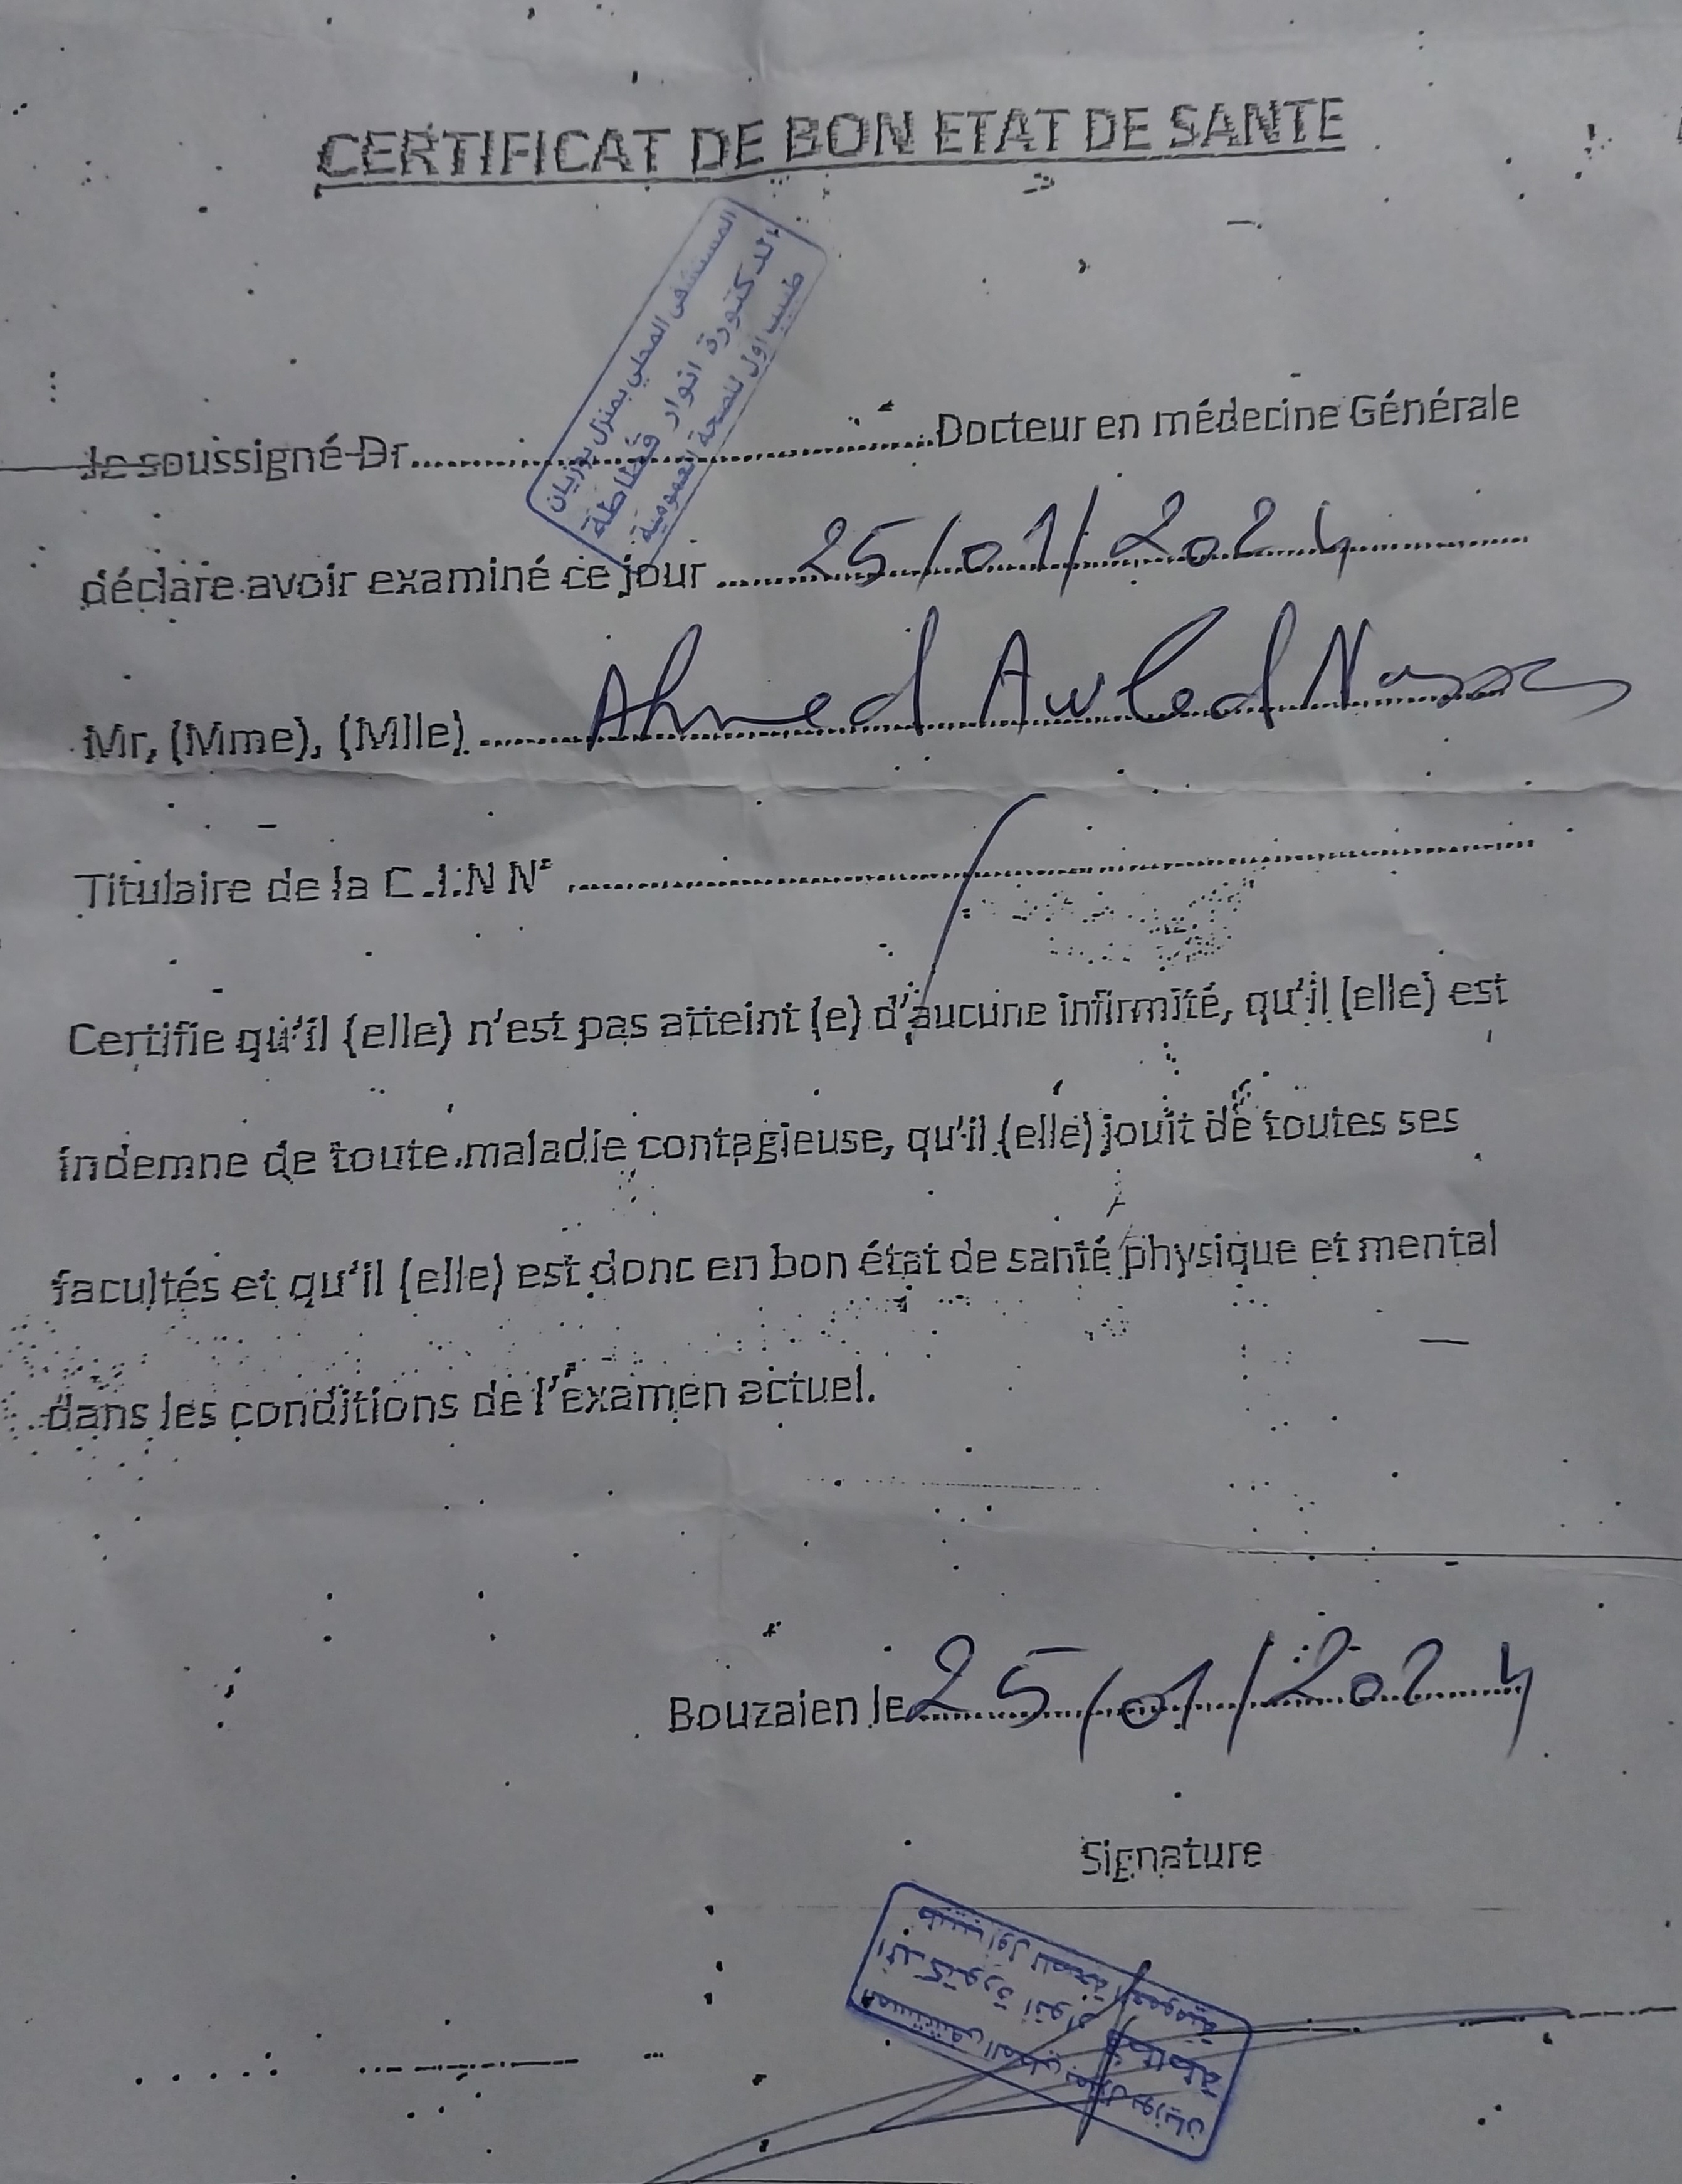 CERTIFICAT DE BON ETAT DE SANTE
المستشفى المحلي بمنزل بوزيان
الدكتورة انوار قطاطة
طبيب اول للصحة العمومية
Je soussigné Dr..............................Docteur en médecine Générale
déclare avoir examiné ce jour 25/01/2024
Mr, (Mme), (Mlle) Ahmed Awled
Titulaire de la C.I.N N° ..............................
Certifie qu'il (elle) n'est pas atteint (e) d'aucune infirmité, qu'il (elle) est
indemne de toute maladie contagieuse, qu'il (elle) jouit de toutes ses
facultés et qu'il (elle) est donc en bon état de santé physique et mental
dans les conditions de l'examen actuel.
Bouzaien le 25/01/2024
Signature
المستشفى المحلي بمنزل بوزيان
الدكتورة انوار قطاطة
طبيب اول للصحة العمومية